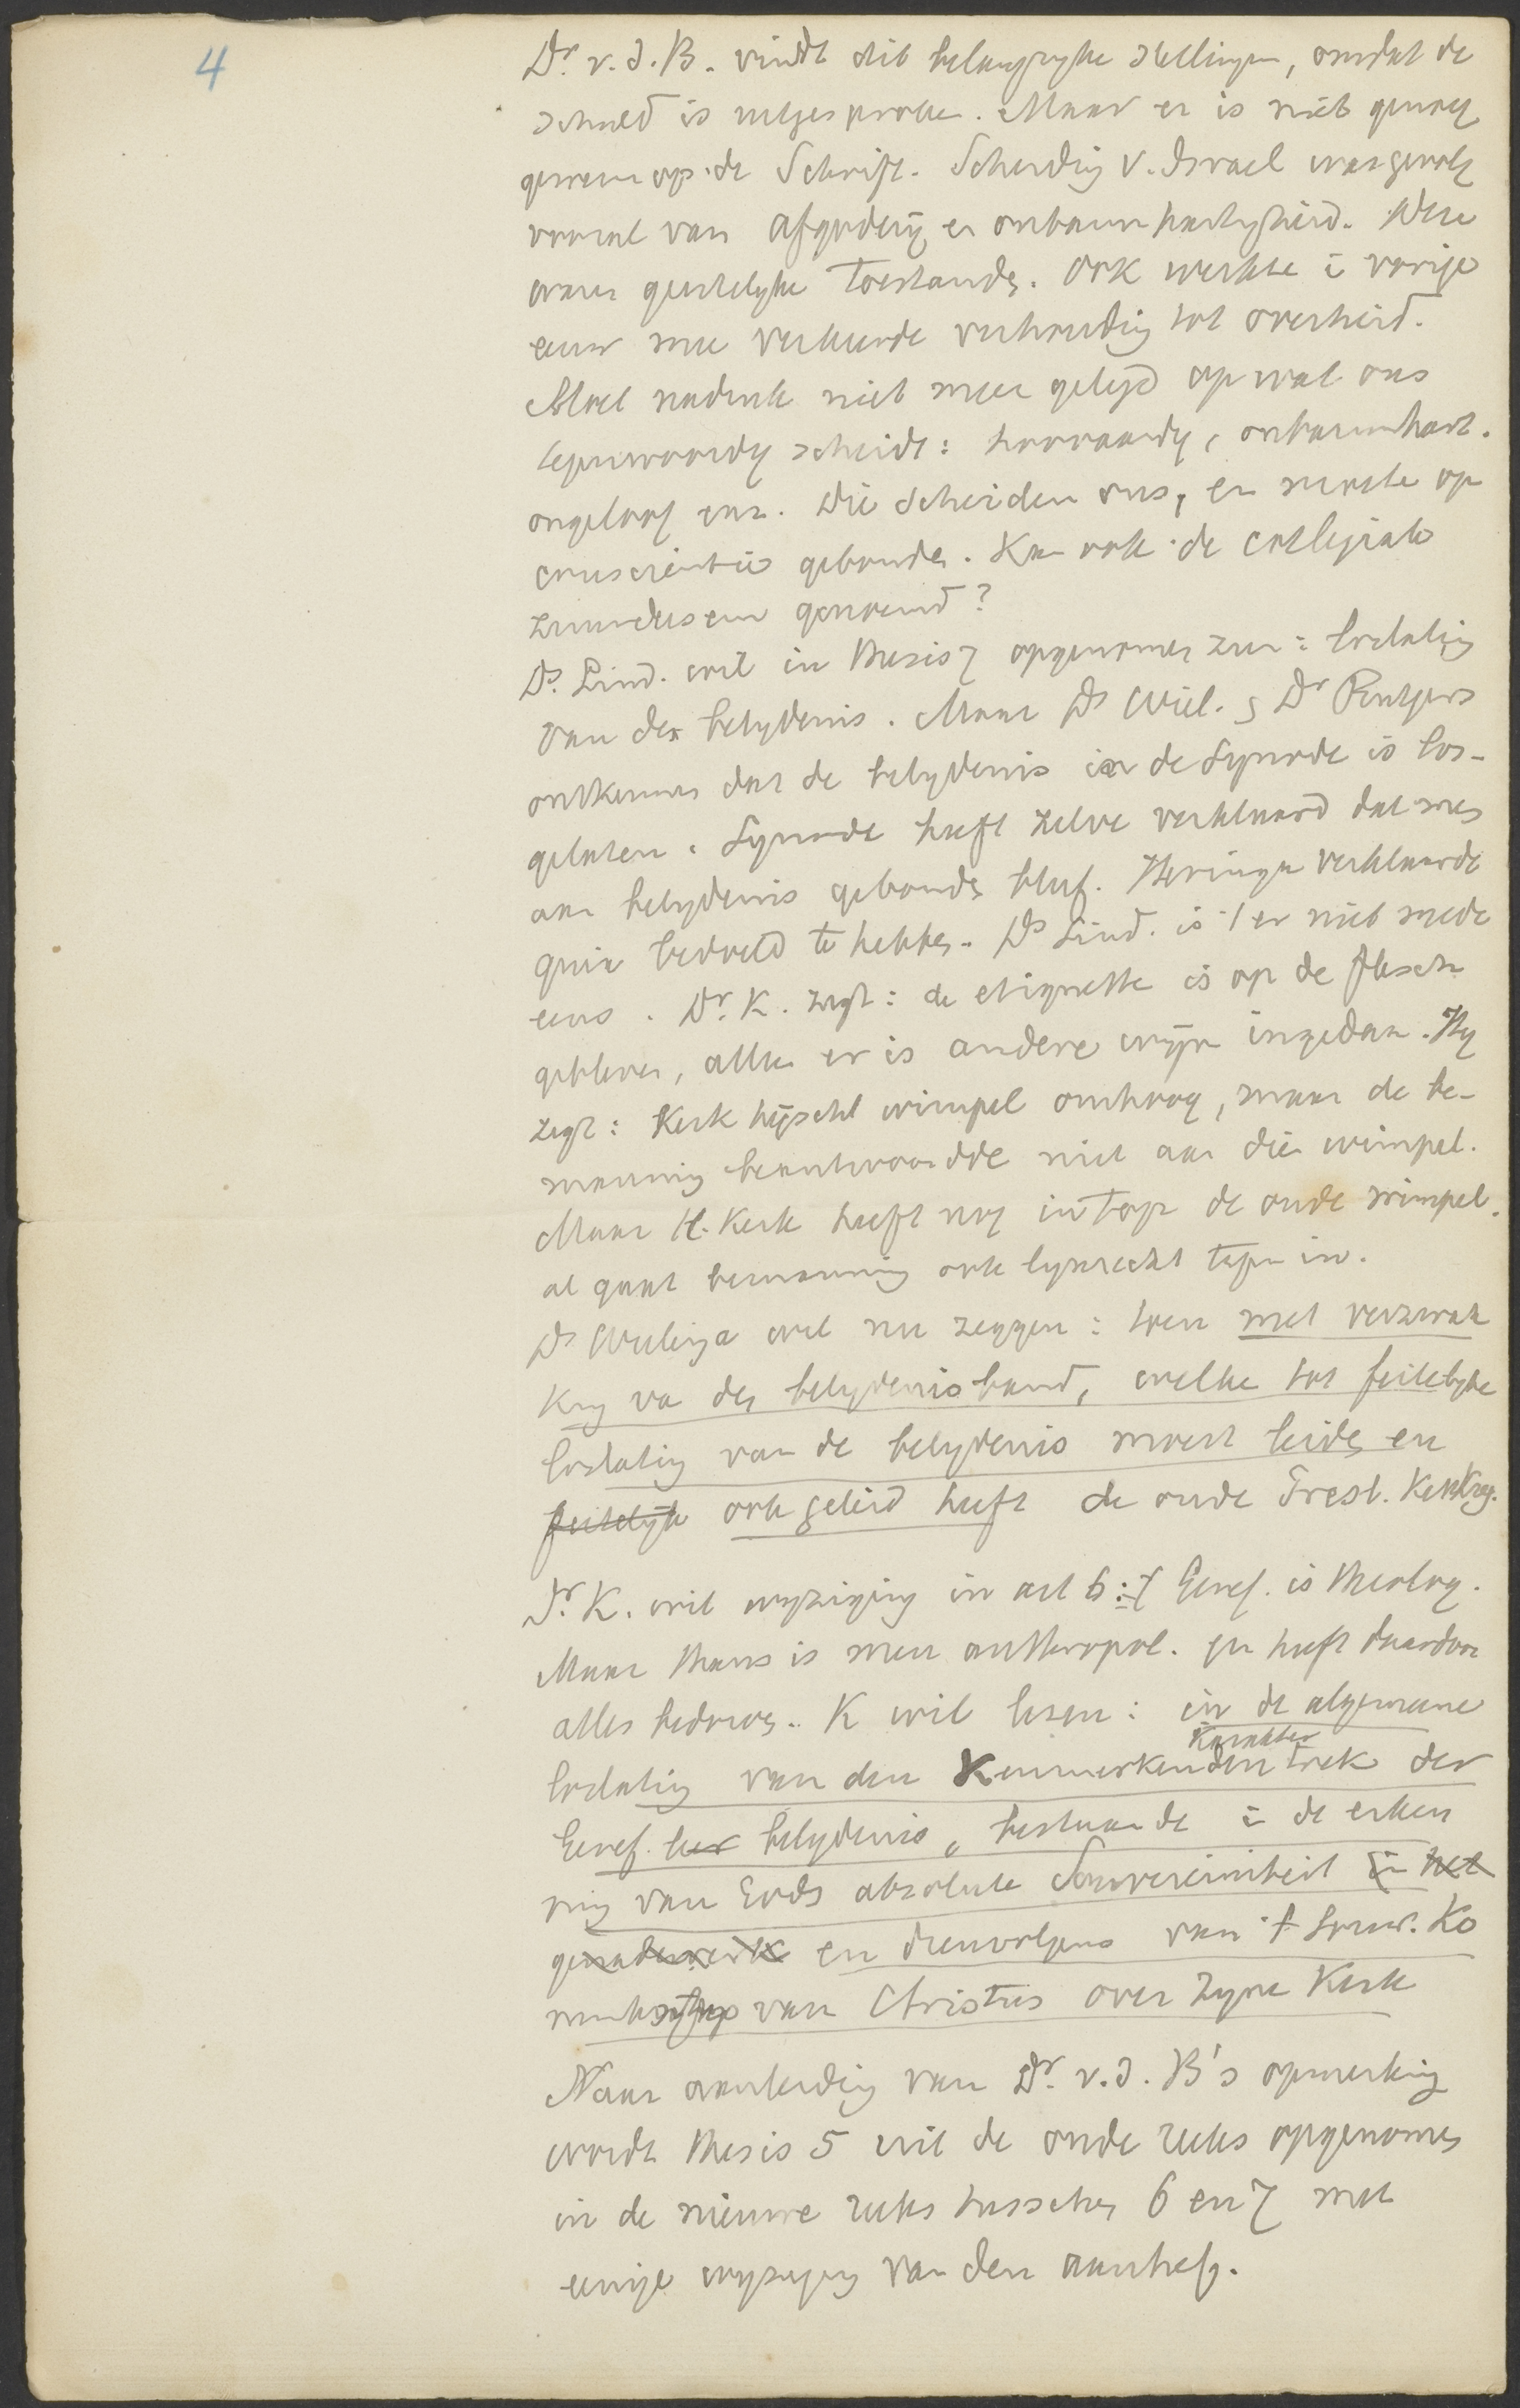 4
Dr. v. d. B. vindt dit belangryke stellingen, omdat de
schuld is uitgesproken. Maar er is niet genoeg
gewezen op de Schrift. Scheiding v. Israel was gevolg
vooral van afgodery en onbarmhartigheid. Deze
waren geestelyke toestanden. Ook werkte i vorige
eeuw mee verkeerde verhouding tot overheid.
Moet nadruk niet meer gelegd op wat ons
tegenwoordig scheidt: hoovaardy, onbarmhart.
ongeloof enz. Die scheiden ons, en moeten op
conscientie gebonden. Kan ook de collegiale
zuurdeesem genoemd?
Ds. Lind. wil in thesis 7 opgenomen zien: loslating
van de belydenis. Maar Ds Wiel. & Dr Rutgers
ontkennen dat de belydenis in de Synode is los-
gelaten. Synode heeft zelve verklaard dat men
aan belydenis gebonden bleef. Heringa verklaarde
quia bedoeld te hebben. Ds Lind. is 't er niet mede
eens. Dr. K. zegt: de etiquette is op de flesch
gebleven, alleen er is andere wijn ingedaan. Hy
zegt: Kerk hijscht wimpel omhoog, maar de be-
manning beantwoordde niet aan die wimpel.
Maar H. Kerk heeft nog in top de oude wimpel.
al gaat bemanning ook lynrecht tegen in.
Ds Wielinga wil nu zeggen: toen met verzwak
king va den belydenisband, welke tot feitelyke
loslating van de belydenis moest leiden en
feitelyk ook geleid heeft de oude Presb. Kerkreg.
Dr. K. wil wyziging in art 6: 't Geref. is theolog.
Maar thans is men anthropol. en heeft daardoor
alles bedorven. K wil lezen: in de algemeene
Karakter
loslating van den Kenmerkenden trek der
Geref. leer belydenis, bestaande i de erken
ning van Gods absolute Souvereiniteit in het
genadewerk en dienvolgens van 't souv. Ko
ninkschap van Christus over zyne Kerk
Naar aanleiding van Dr. v. d. B's opmerking
wordt thesis 5 uit de oude reeks opgenomen
in de nieuwe reeks tusschen 6 en 7 met
eenige wyziging van den aanhef.